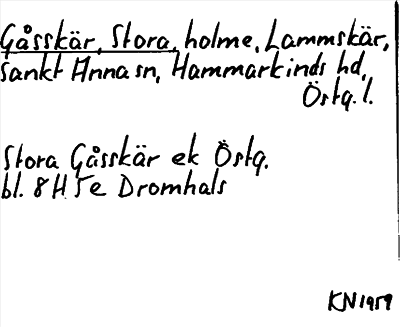 Gåsskär, Stora, holme, Lammskär,
Sankt Anna sn, Hammarkinds hd,
Östg. l.
Stora Gåsskär ek Östg.
bl. 8H 5e Dromhals
KN 1959